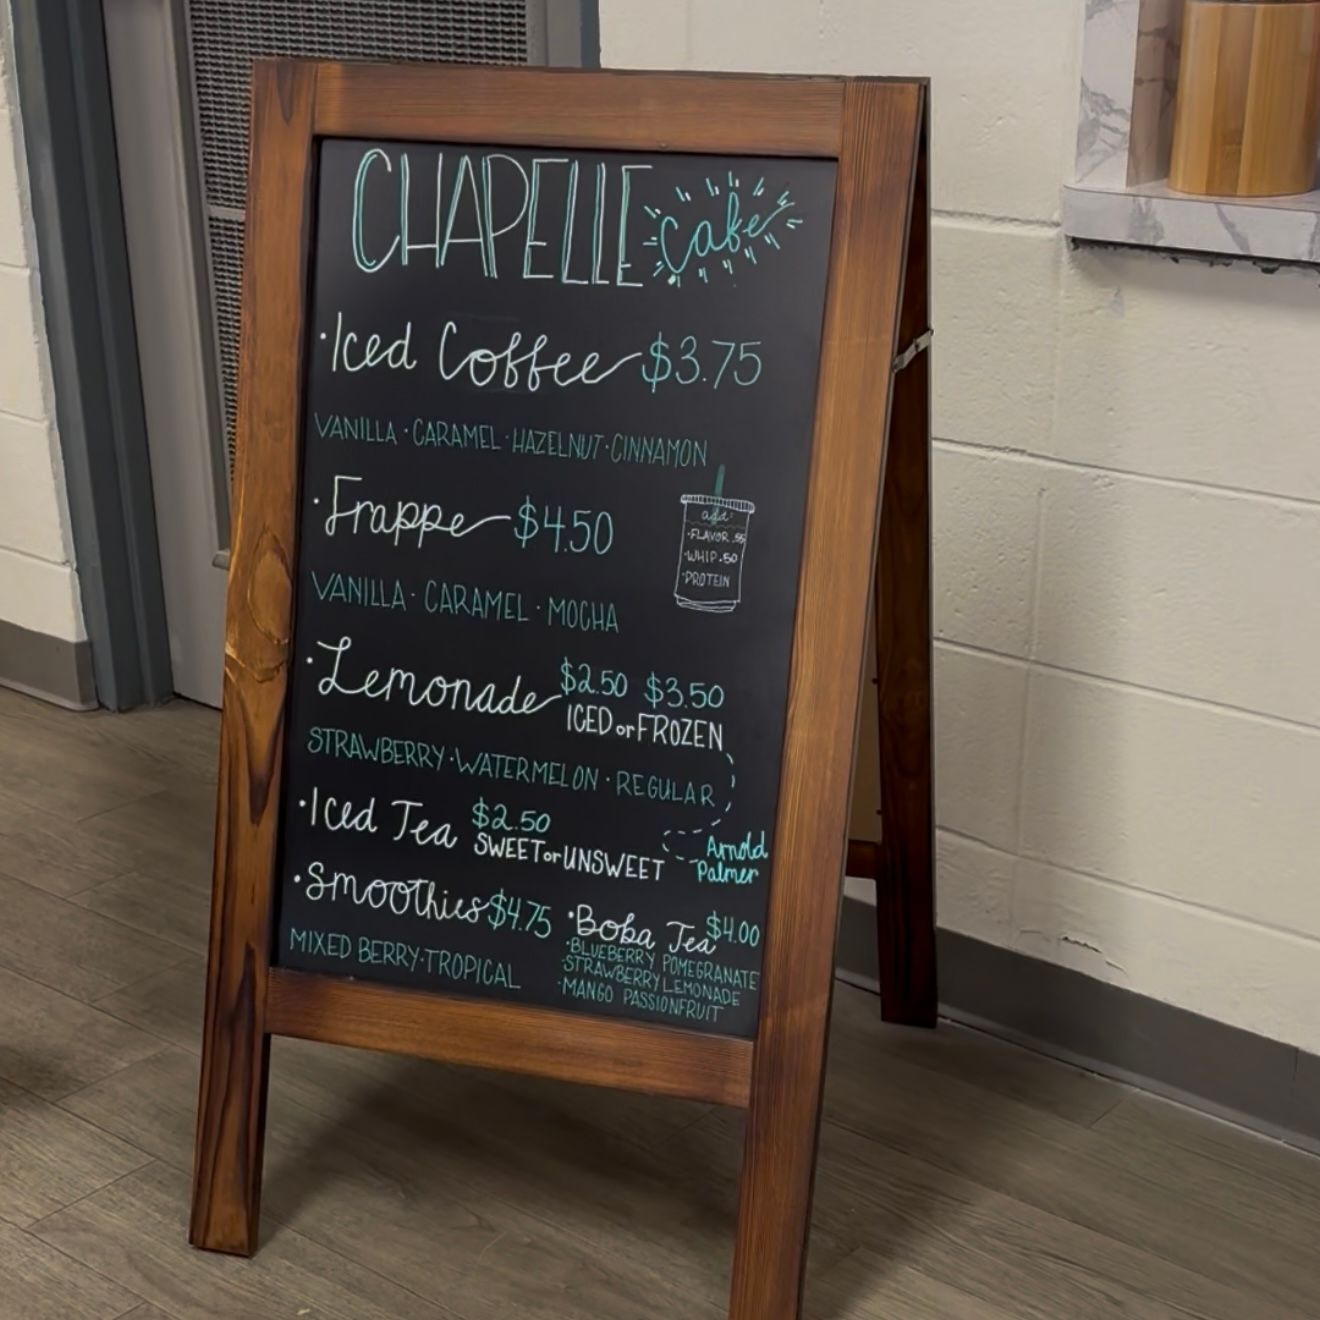 CHAPELLE Cafe
·Iced Coffee $3.75
VANILLA · CARAMEL · HAZELNUT · CINNAMON
·Frappe $4.50
add:
·FLAVOR .55
·WHIP .50
·PROTEIN
VANILLA · CARAMEL · MOCHA
·Lemonade $2.50 $3.50
ICED or FROZEN
STRAWBERRY · WATERMELON · REGULAR
·Iced Tea $2.50
SWEET or UNSWEET
Arnold
Palmer
·Smoothies $4.75
MIXED BERRY · TROPICAL
·Boba Tea $4.00
·BLUEBERRY POMEGRANATE
·STRAWBERRY LEMONADE
·MANGO PASSIONFRUIT